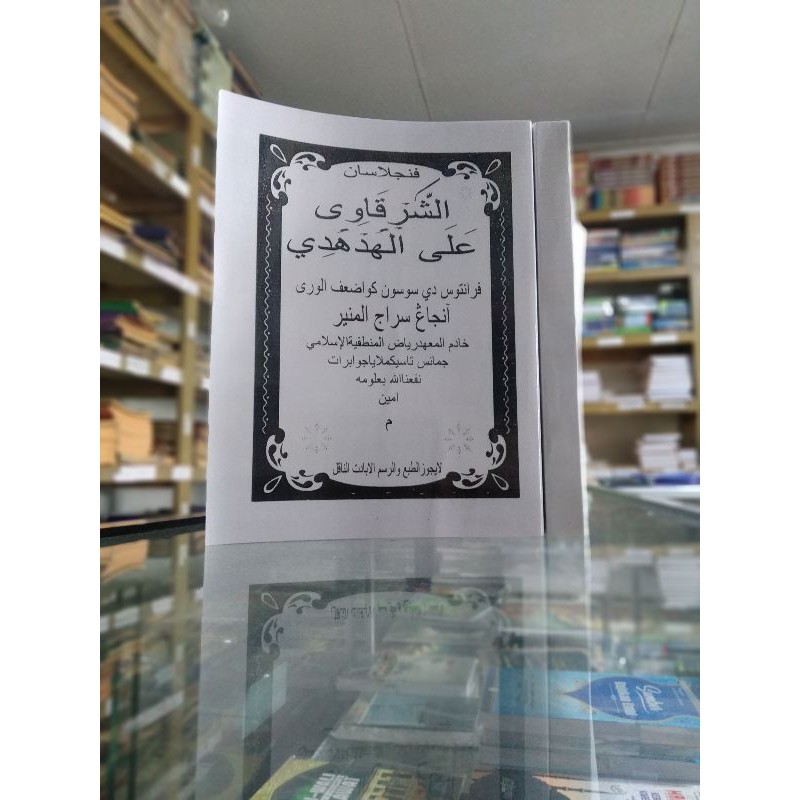 فنجلاسان
الشَّرقَاوِى
عَلَى الْهَدْهَدِي
فرانتوس دي سوسون كواضعف الورى
آنجاڠ سراج المنير
خادم المعهدرياض المنطفيةالإسلامي
جمانس تاسيكملاياجوابرات
نفعناالله بعلومه
امين
م
لايجوزالطبع والرسم الابادت الناقل